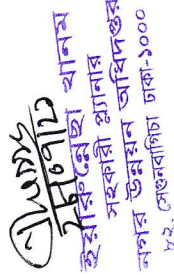 ইয়ারুন্নেছা খানম
সহকারী প্ল্যানার
নগর উন্নয়ন অধিদপ্তর
৮২, সেগুনবাগিচা ঢাকা-১০০০